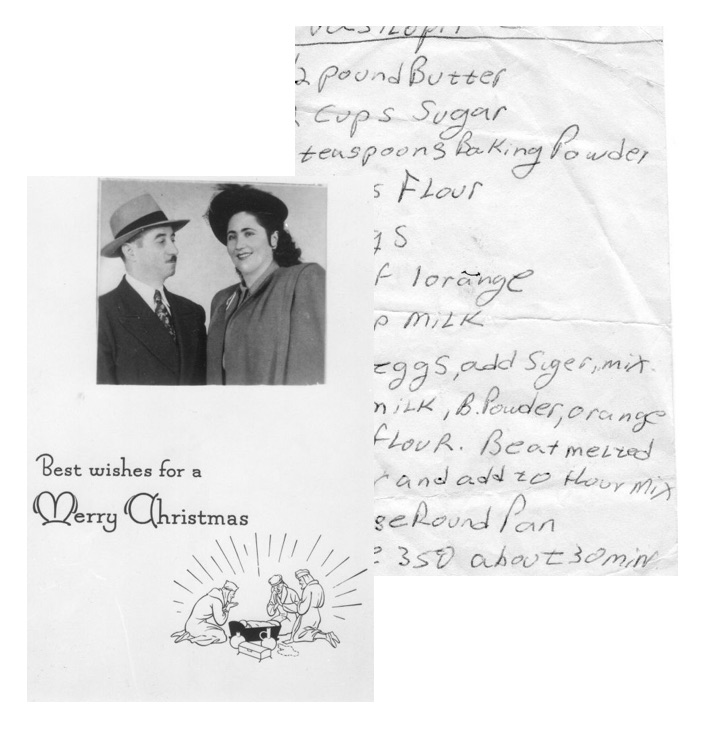 pound Butter
Cups Sugar
teaspoons Baking Powder
s Flour
gs
f 1 orange
p MILK
eggs, add Suger, mix.
milk, B. Powder, orange
flour. Beat melted
r and add to flour mix
ge Round Pan
e 350 about 30 min
Best wishes for a
Merry Christmas